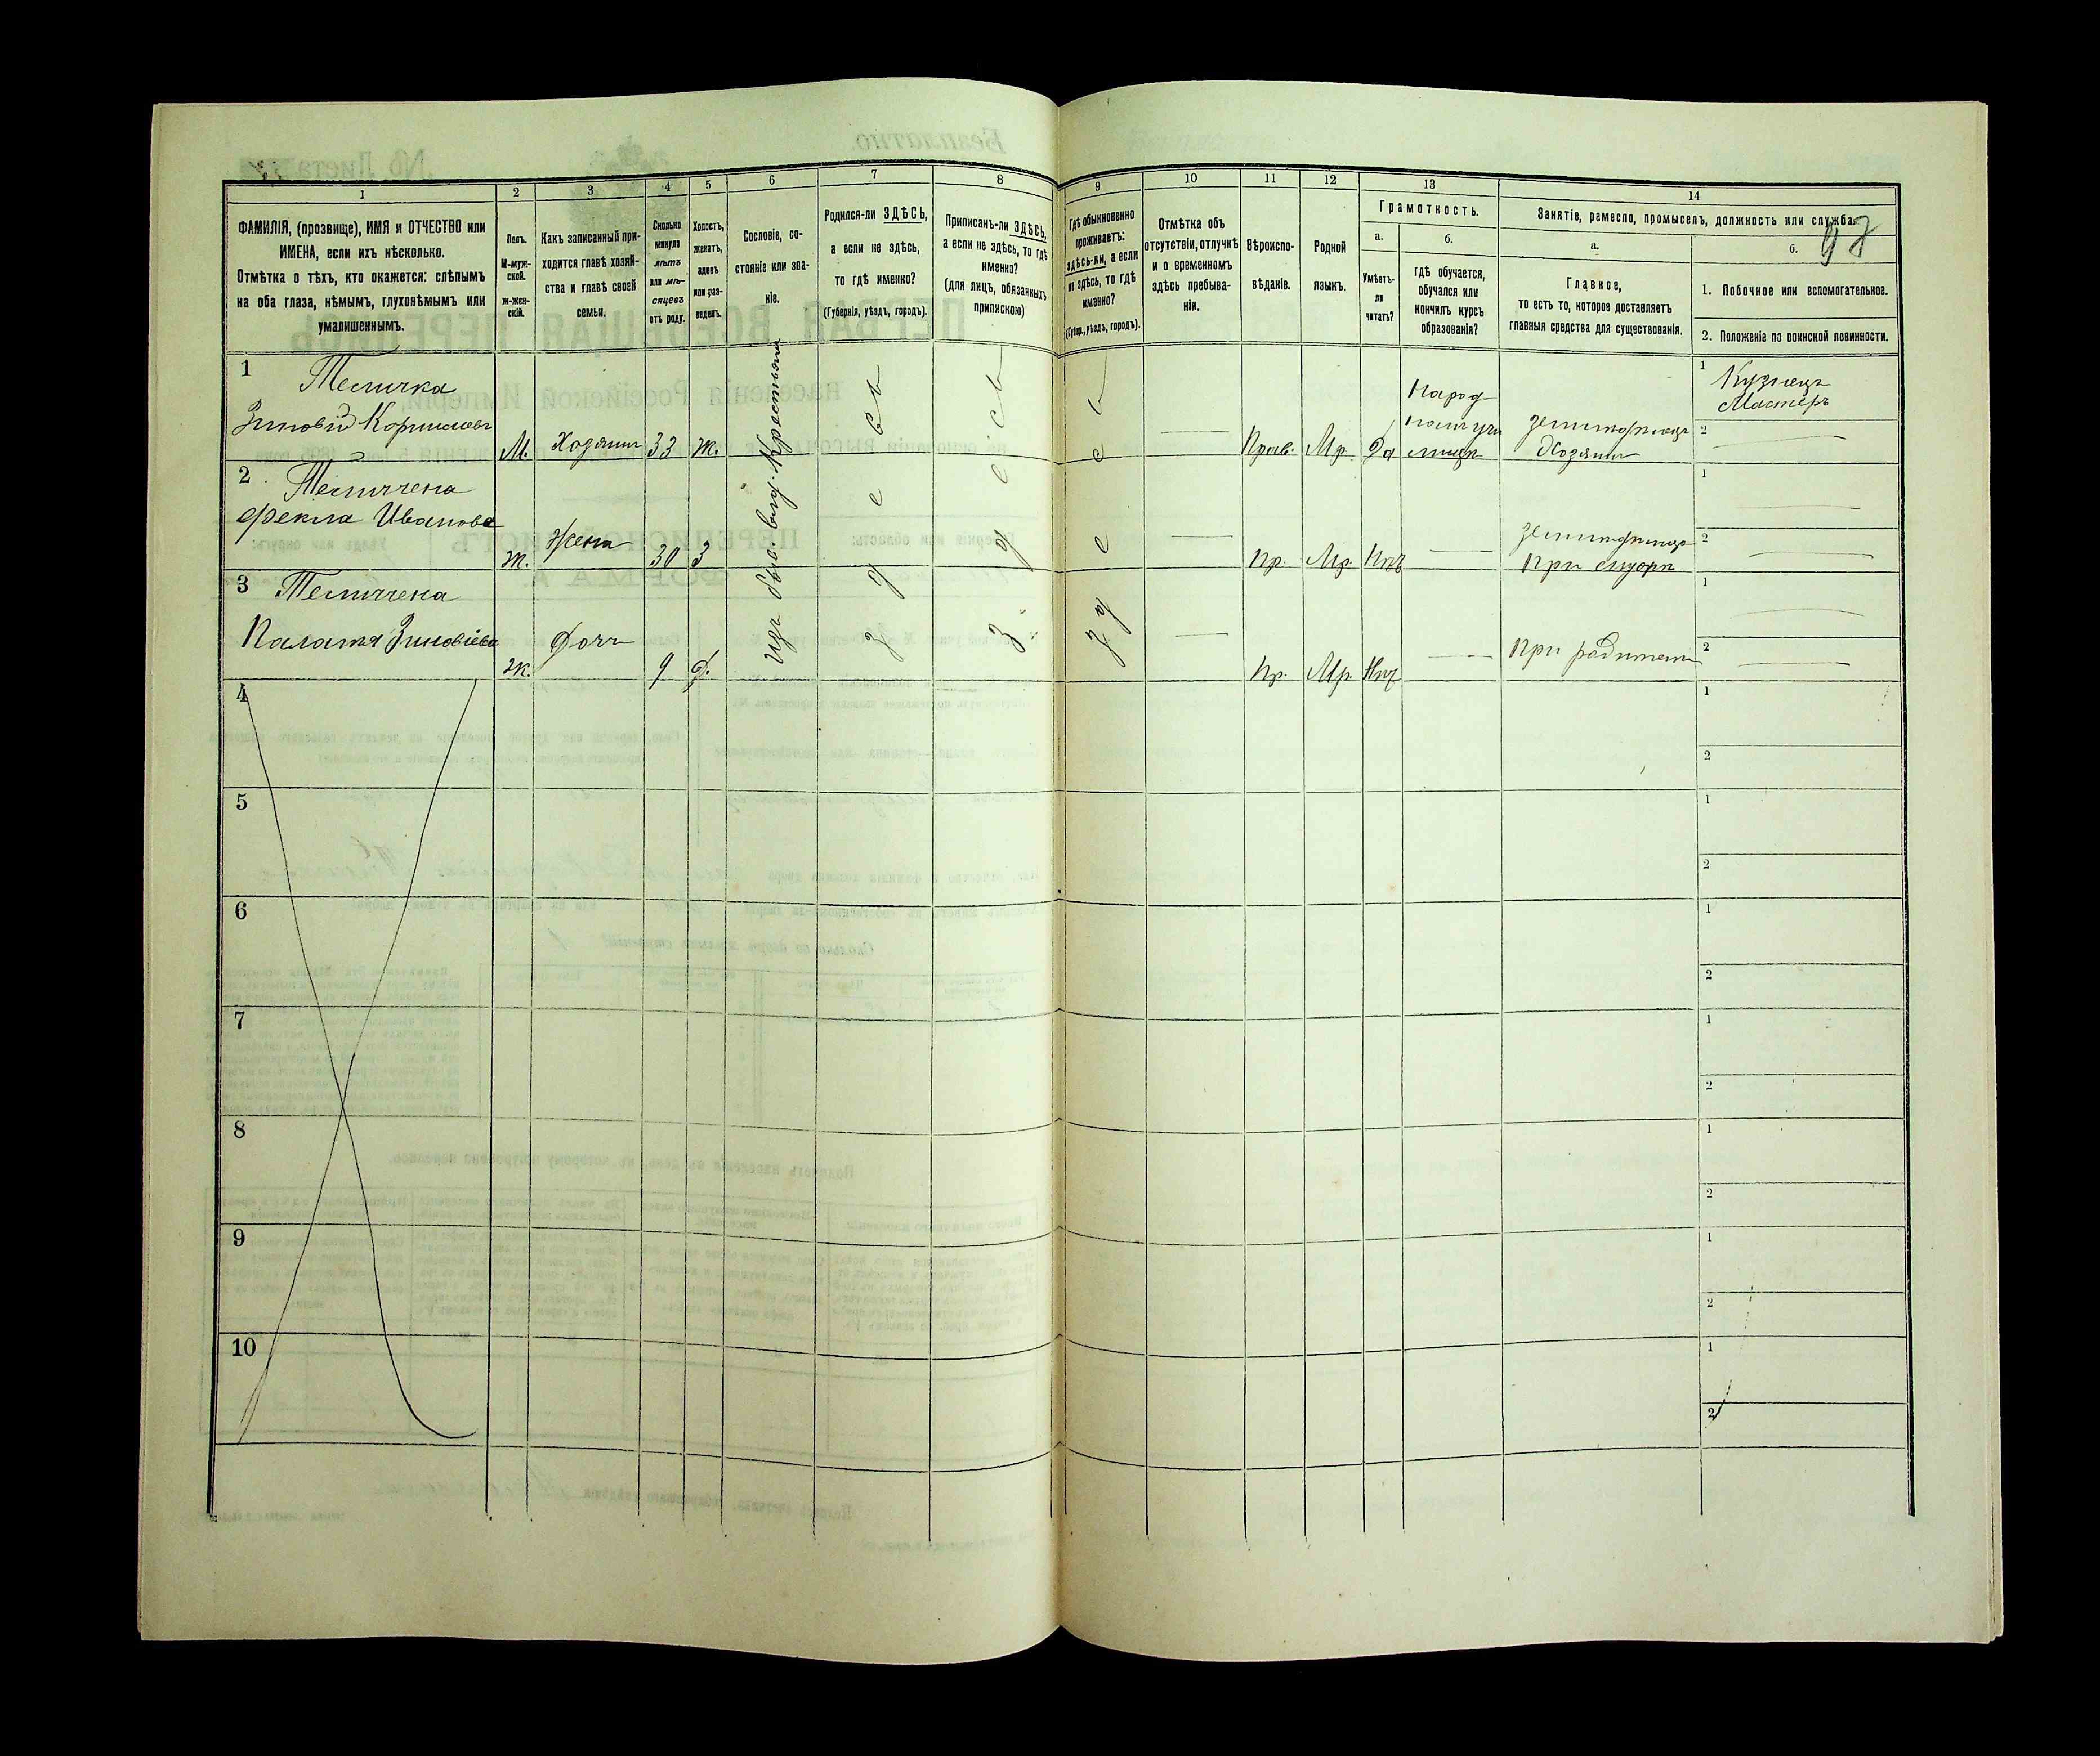 1 2 3 4 5 6 7 8 9 10 11 12 13 14
ФАМИЛІЯ, (прозвище), ИМЯ и ОТЧЕСТВО или
ИМЕНА, если ихъ нѣсколько.
Отмѣтка о тѣхъ, кто окажется: слѣпымъ
на оба глаза, нѣмымъ, глухонѣмымъ или
умалишеннымъ.
Полъ.
М-муж-
ской.
Ж-жен-
скій.
Какъ записанный при-
ходится главѣ хозяй-
ства и главѣ своей
семьи.
Сколько
минуло
лѣтъ
или мѣ-
сяцевъ
отъ роду.
Холостъ,
женатъ,
вдовъ
или раз-
веденъ.
Сословіе, со-
стояніе или зва-
ніе.
Родился-ли ЗДѢСЬ,
а если не здѣсь,
то гдѣ именно?
(Губернія, уѣздъ, городъ).
Приписанъ-ли ЗДѢСЬ,
а если не здѣсь, то гдѣ
именно?
(для лицъ, обязанныхъ
припискою)
Гдѣ обыкновенно
проживаетъ:
здѣсь-ли, а если
не здѣсь, то гдѣ
именно?
(Губерн., уѣздъ, городъ).
Отмѣтка объ
отсутствіи, отлучкѣ
и о временномъ
здѣсь пребыва-
ніи.
Вѣроиспо-
вѣданіе.
Родной
языкъ.
Грамотность.
а.
Умѣетъ-
ли
читать?
б.
гдѣ обучается,
обучался или
кончилъ курсъ
образованія?
Занятіе, ремесло, промыселъ, должность или служба.
а.
Главное,
то есть то, которое доставляетъ
главныя средства для существованія.
б.
1. Побочное или вспомогательное.
2. Положеніе по воинской повинности.
1
Теличка
Зиновій Корниловъ
М. Хозяинъ 33 ж.
изъ быв. влад. Крестьянъ
здесь
здесь
здесь
Прав. Мр. Да
Народ
номъ учи
лищѣ
Хозяинъ
1
Кузнецъ
Мастеръ
2
2
Теличчена
Фекла Иванова
ж. Жена 30 З
Пр. Мр. Нѣтъ
При
1
2
3
Теличчена
Палатя Зиновіева
ж. Дочь 9 Д.
Пр. Мр. Нѣт
При
1
2
4
1
2
5
1
2
6
1
2
7
1
2
8
1
2
9
1
2
10
1
2